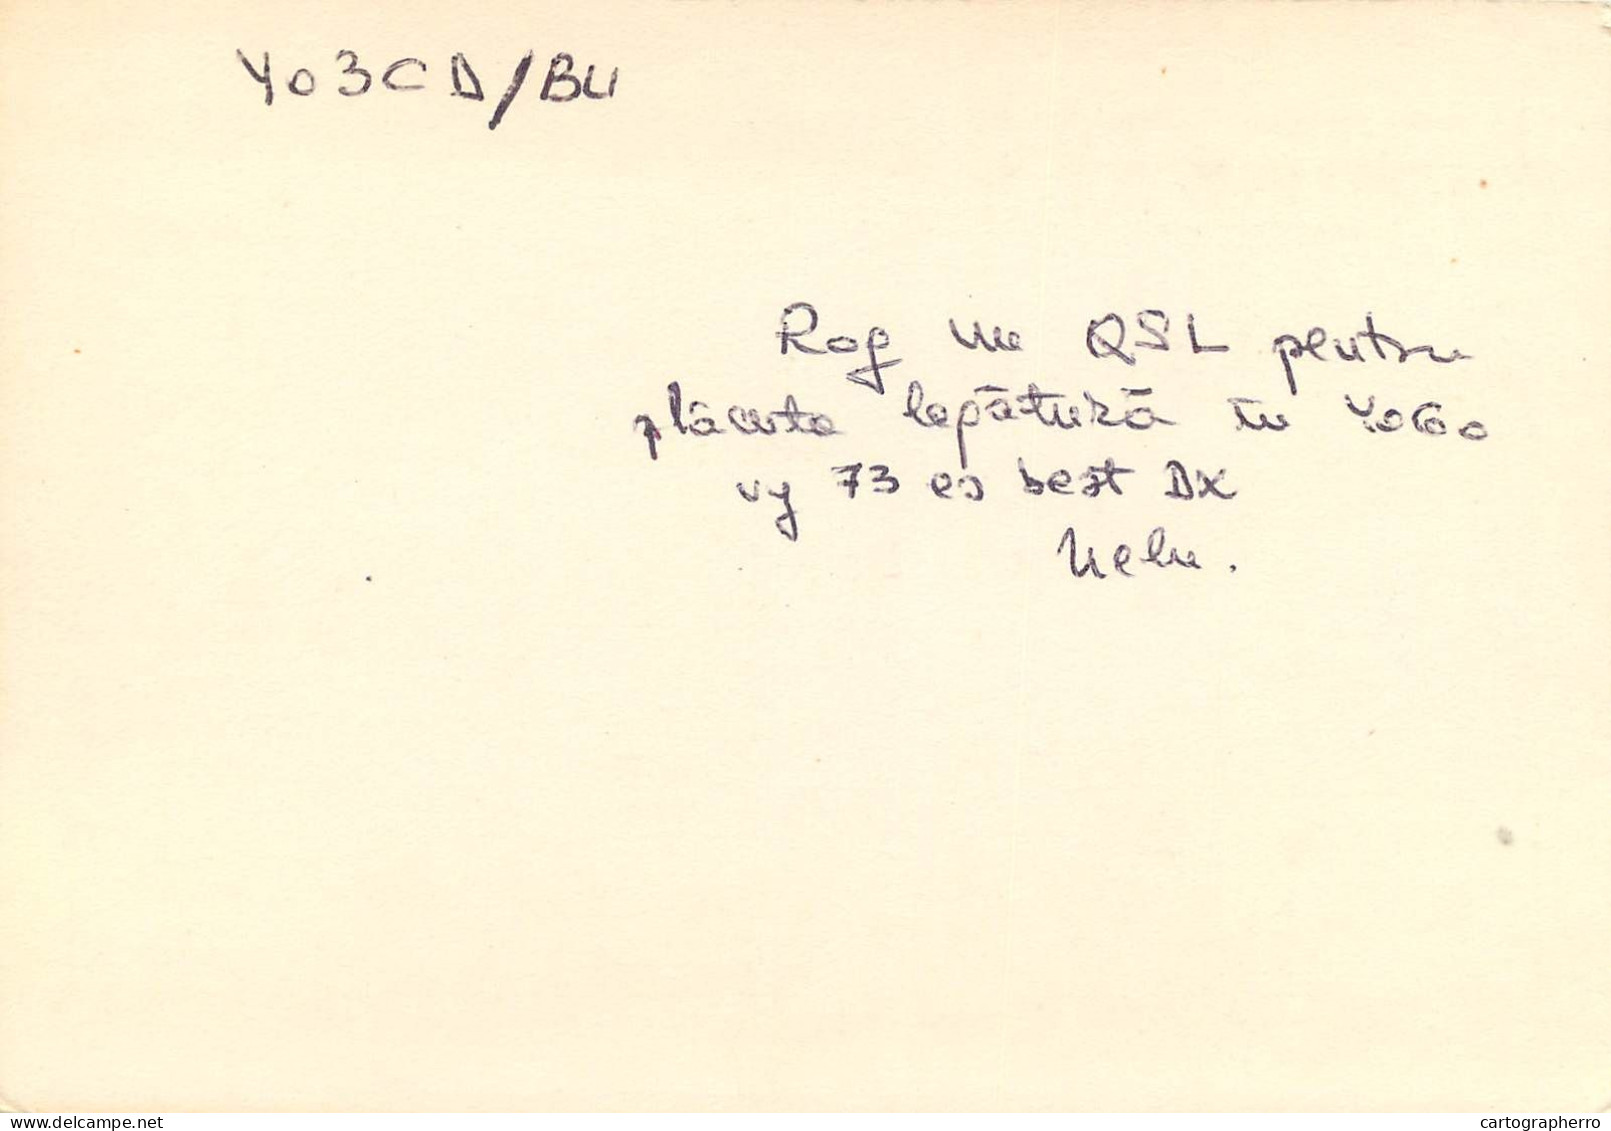 YO3CD/BU
Rog un QSL pentru
plăcuta legătură în YO60
vy 73 es best DX
Nelu.
www.delcampe.net
cartographerro